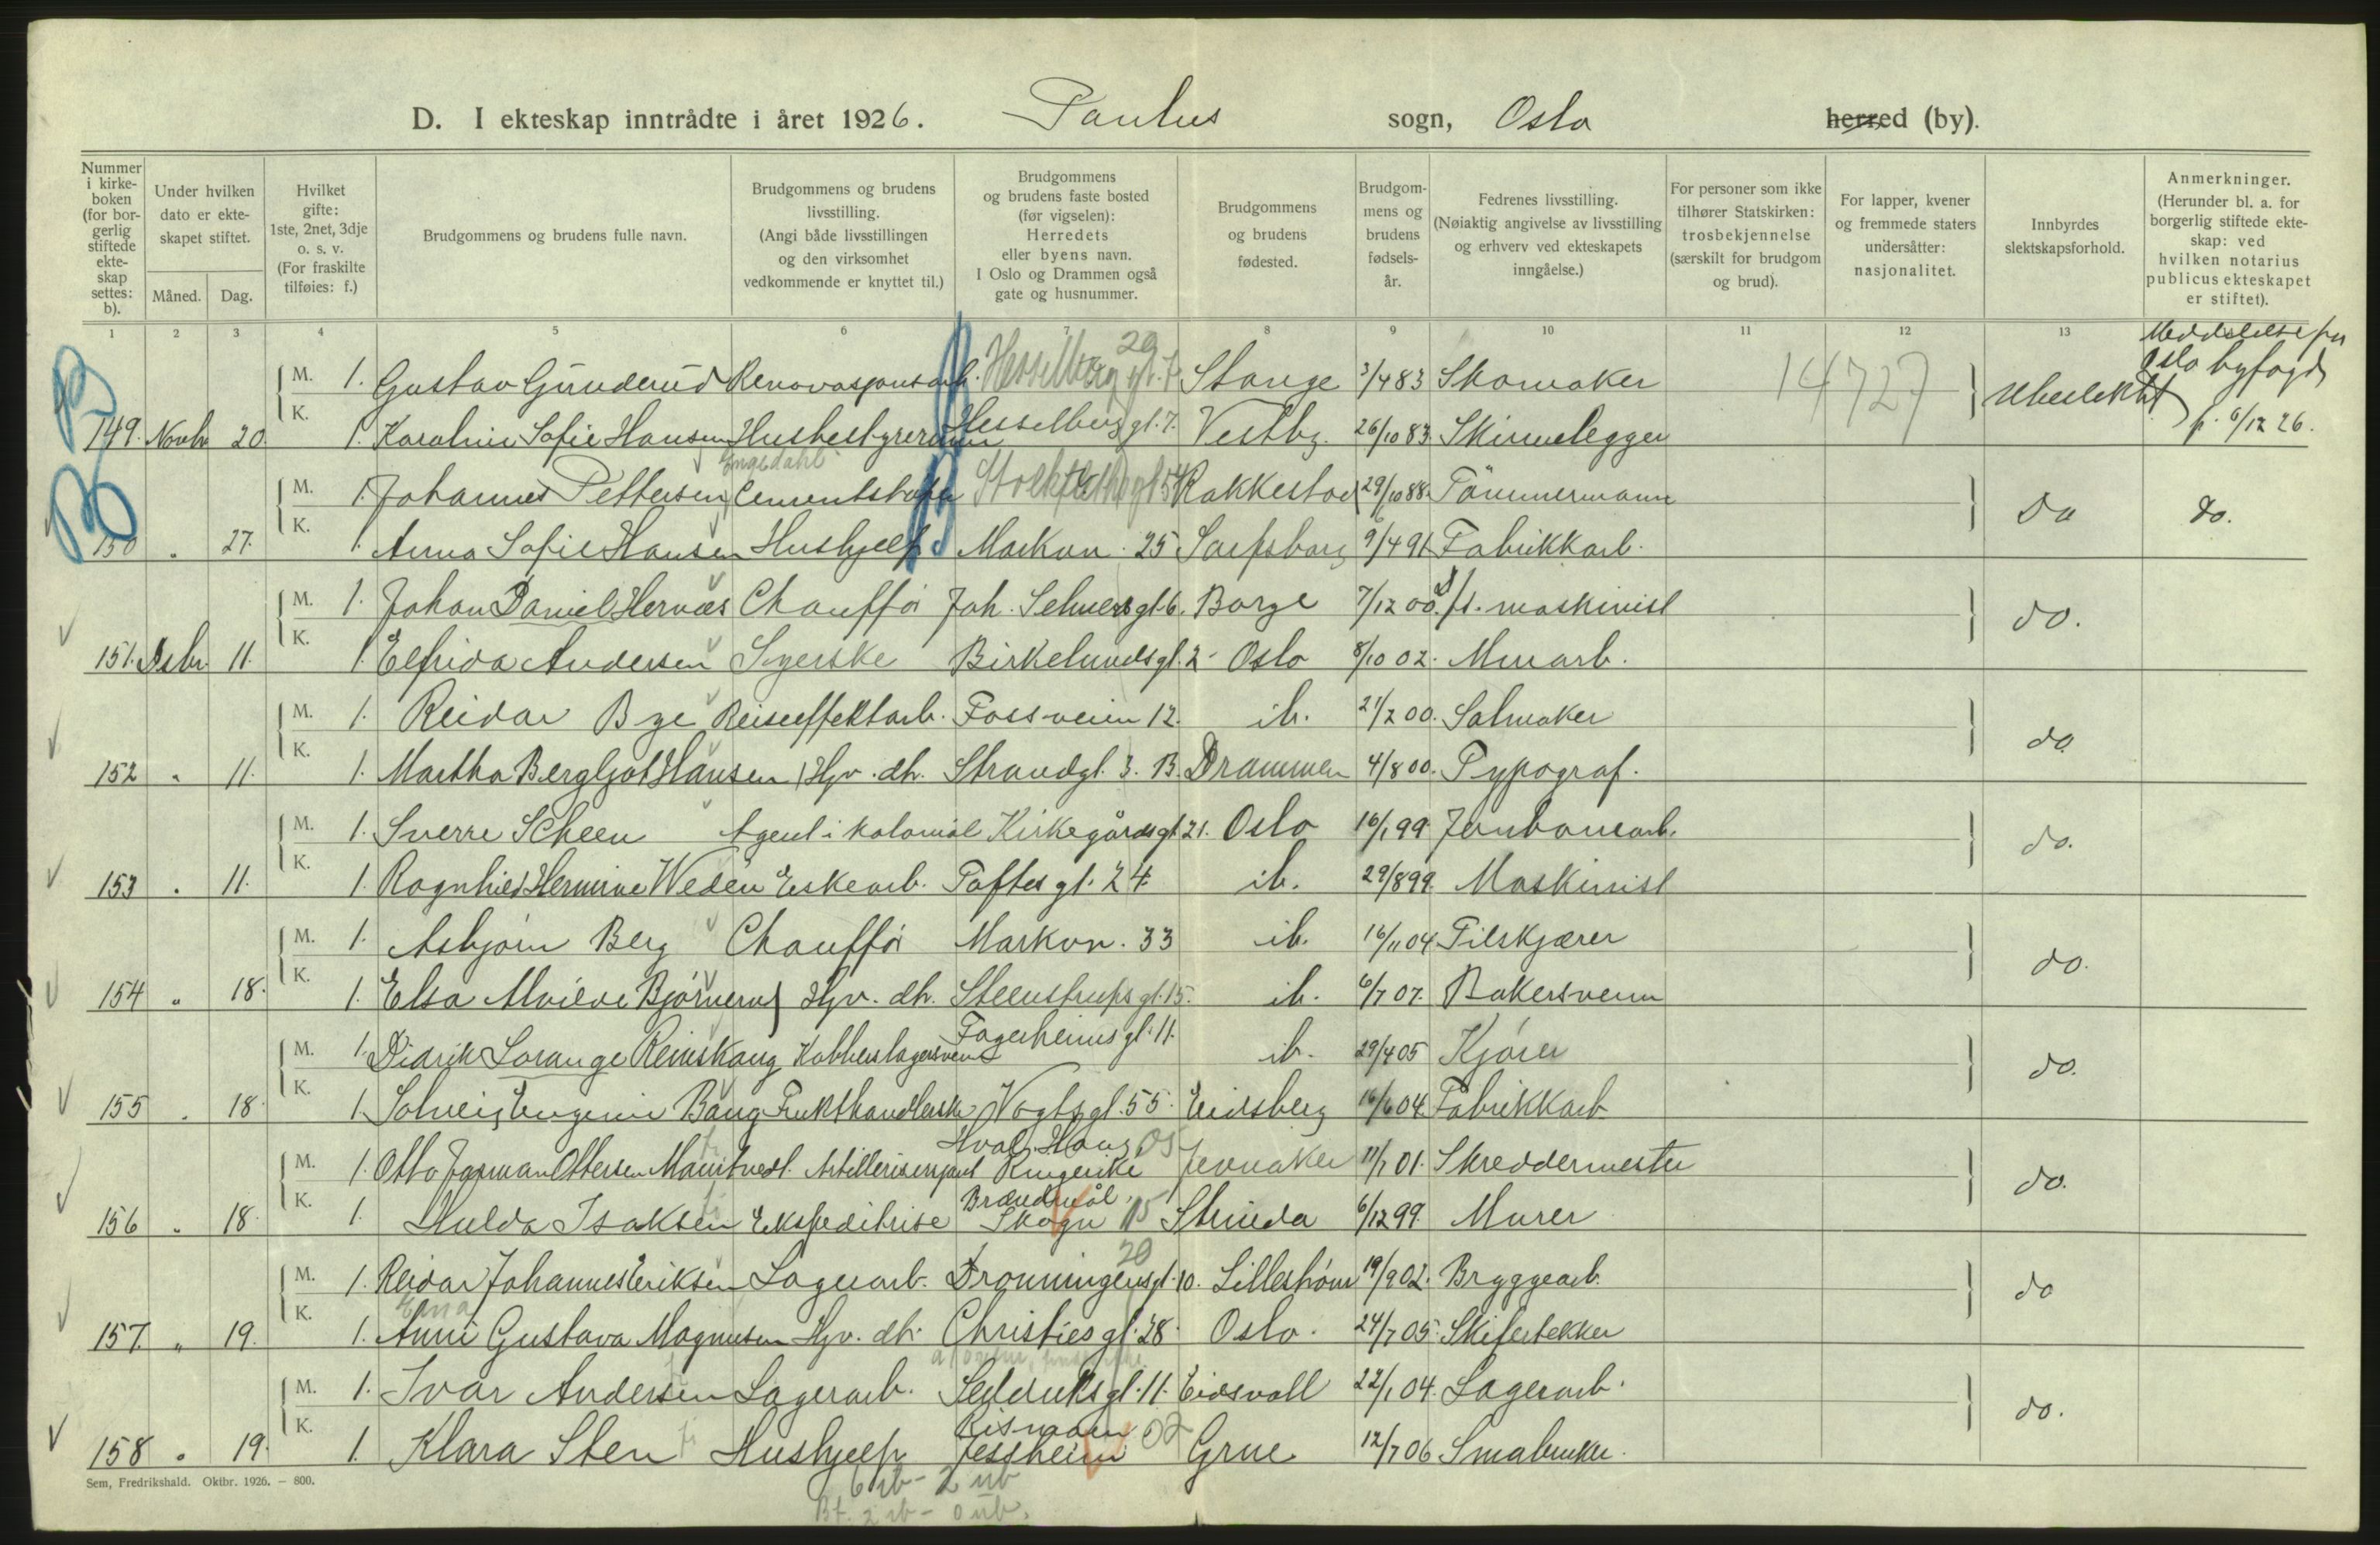 D. I ekteskap inntrådte i året 1926. Paulus sogn, Oslo herred (by).
Nummer i kirkeboken (for borgerlig stiftede ekteskap settes: b).
Under hvilken dato er ekteskapet stiftet.
Måned. Dag.
Hvilket gifte: 1ste, 2net, 3dje o. s. v. (For fraskilte tilføies: f.)
Brudgommens og brudens fulle navn.
Brudgommens og brudens livsstilling. (Angi både livsstillingen og den virksomhet vedkommende er knyttet til.)
Brudgommens og brudens faste bosted (før vigselen): Herredets eller byens navn. I Oslo og Drammen også gate og husnummer.
Brudgommens og brudens fødested.
Brudgommens og brudens fødselsår.
Fedrenes livsstilling. (Nøiaktig angivelse av livsstilling og erhverv ved ekteskapets inngåelse.)
For personer som ikke tilhører Statskirken: trosbekjennelse (særskilt for brudgom og brud).
For lapper, kvener og fremmede staters undersåtter: nasjonalitet.
Innbyrdes slektskapsforhold.
Anmerkninger. (Herunder bl. a. for borgerlig stiftede ekteskap: ved hvilken notarius publicus ekteskapet er stiftet).
1 2 3 4 5 6 7 8 9 10 11 12 13
B
M. 1. Gustav Günderud Renovasjonsarb. Hesselberg gt. 7 29 Stange 3/4 83 Skomaker 14727 Ubeslektet Meddelelse fra Oslo byfogd
149. Novbr 20. K. 1. Karoline Sofie Hansen Husbestyrerinne Hesselberg gt. 7. Vestby. 26/10 83. Skinnelegger p. 6/12 26.
Engedahl
B
M. 1. Johannes Pettersen Cementstøper Stockfleths gt 54 Rakkestad 29/10 88. Tömmermann do do.
150 " 27. K. 1. Anna Sofie Hansen Hushjelp Markvn. 25 Sarpsborg 9/4 91 Fabrikkarb.
M. 1. Johan Daniel Hernæs Chauffør Joh. Selmers gt. 6. Borge 7/12 00. f. maskinist do.
151. Desbr. 11. K. 1. Elfrida Andersen Syerske Birkelunds gt. 2 Oslo 8/10 02. Murarb.
M. 1. Reidar Bye Reiseeffektarb. Fossveien 12. ib. 21/2 00. Salmaker do.
152 " 11. K. 1. Martha Bergljot Hansen Hjv. dh. Strandgt. 3. B. Drammen 4/8 00. Typograf.
M. 1. Sverre Scheen Agent i kolonial Kirkegårdsgt. 21. Oslo 16/1 99 Jernbanearb. do.
153 " 11. K. 1. Ragnhild Hermine Wedén Eskearb. Toftes gt. 24. ib. 29/8 99. Maskinist
M. 1. Asbjørn Berg Chauffør Markvn. 33 ib. 16/11 04 Filskjærer do.
154 " 18. K. 1. Elsa Alvilde Bjørnerud Hjv. dh. Steenstrups gt. 15. ib. 6/7 07. Bakersvenn
M. 1. Didrik Lorange Remskaug Kobberslagersvend Fagerheims gt. 11. ib. 29/4 05 Kjører do.
155 " 18. K. 1. Solveig Eugenie Baug Frukthandlerske Vogts gt. 55. Eidsberg 16/6 04. Fabrikkarb
Hval. Haug 05
M. 1. Otto Jarman Ottersen Artillerisersjant Ringerike Jevnaker 11/7 01. Skreddermester do.
Brændmål
156 " 18. K. 1. Hulda Isaksen Ekspeditrise Skogn 15 Strinda 6/12 99. Murer
M. 1. Reidar Johannes Eriksen Lagerarb. Dronningensgt. 10. 20 Lillestrøm 19/9 02. Bryggearb. do
157. " 19. K. 1. Anni Gustava Magnusen Hjv. dh. Christies gt. 28. Oslo. 24/7 05. Skifertekker
M. 1. Ivar Andersen Lagerarb. Seilduks gt. 11. Eidsvoll 22/1 04. Lagerarb. do.
Rismoen 02
158 " 19. K. 1. Klara Sten Hushjelp Jessheim Grue 12/7 06 Småbruker.
Sem, Fredrikshald. Oktbr. 1926. – 800.
6 ib - 2 ub
Bt. 2 ib - 0 ub.